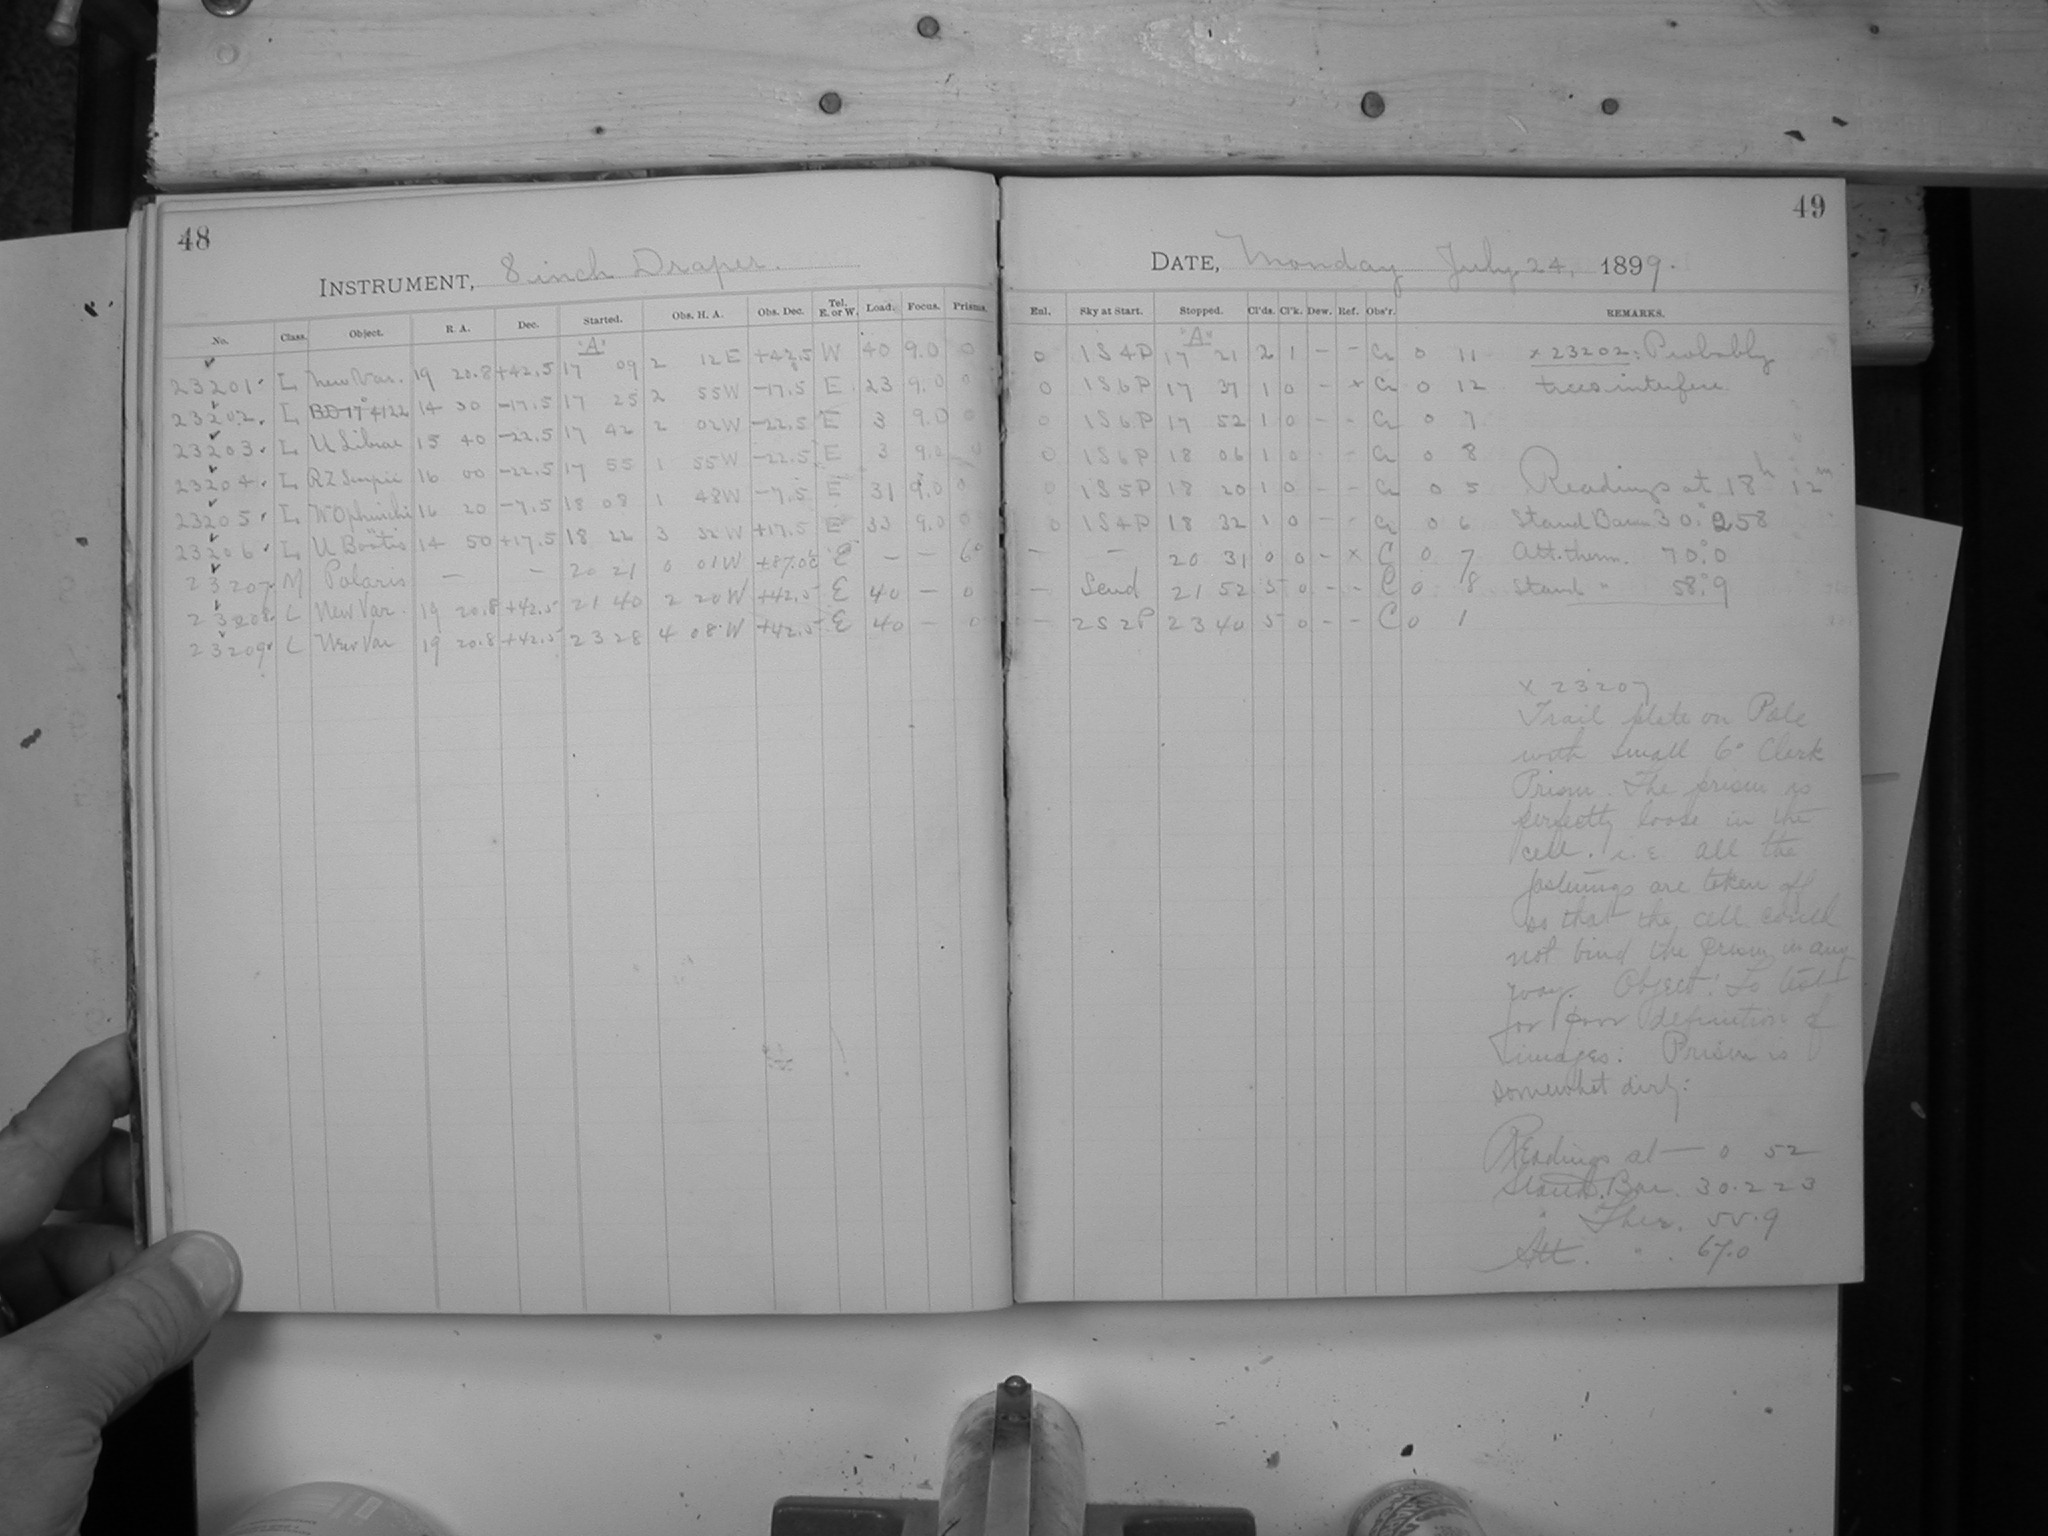 48
INSTRUMENT, 8 inch Draper.
No. Class. Object. R. A. Dec. Started. Obs. H. A. Obs. Dec. Tel. E. or W. Load. Focus. Prisms.
"A"
23201. L New Var. 19 20.8 +42.5 17 09 2 12 E +42.5 W 40 9.0 0
23202. L BD-17° 4122 14 30 -17.5 17 25 2 55 W -17.5 E 23 9.0 0
23203. L U Librae 15 40 -22.5 17 42 2 02 W -22.5 E 3 9.0 0
23204. L RZ Scorpii 16 00 -22.5 17 55 1 55 W -22.5 E 3 9.0 0
23205. L Ophiuchi 16 20 -7.5 18 08 1 48 W -7.5 E 31 9.0 0
23206. L U Boötis 14 50 +17.5 18 22 3 32 W +17.5 E 33 9.0 0
23207. M Polaris — — 20 21 0 01 W E — — 6°
23208. L New Var. 19 20.8 +42.5 21 40 2 20 W +42.5 E 40 — 0
23209. L New Var 19 20.8 +42.5 23 28 4 08 W +42.5 E 40 — 0
49
DATE, Monday July 24, 1899.
Enl. Sky at Start. Stopped. Cl'ds. Cl'k. Dew. Ref. Obs'r. REMARKS.
"A"
0 1S4P 17 21 2 1 – – Cr 0 11 x 23202: Probably
0 1S6P 17 37 1 0 – x Cr 0 12 trees interfere.
0 1S6P 17 52 1 0 – – Cr 0 7
0 1S6P 18 06 1 0 – – Cr 0 8
0 1S5P 18 20 1 0 – – Cr 0 5 Readings at 18h 12m
0 1S4P 18 32 1 0 – – Cr 0 6 Stand Barom 30.258
— — 20 31 0 0 – x C 0 7 Att. therm. 70.°0
— Send 21 52 5 0 – – C 0 8 Stand " 58.°9
— 2S2P 23 40 5 0 – – C 0 1
x 23207
Trail plate on Pole
with small 6° Clark
Prism. The prism is
perfectly loose in the
cell. i.e. all the
fastenings are taken off
so that the cell could
not bind the prism in any
way. Object: To test
for poor definition of
images. Prism is
somewhat dirty:
Readings at — 0 52
Stand. Bar. 30.223
" Ther. 55.9
Att. " . 67.0